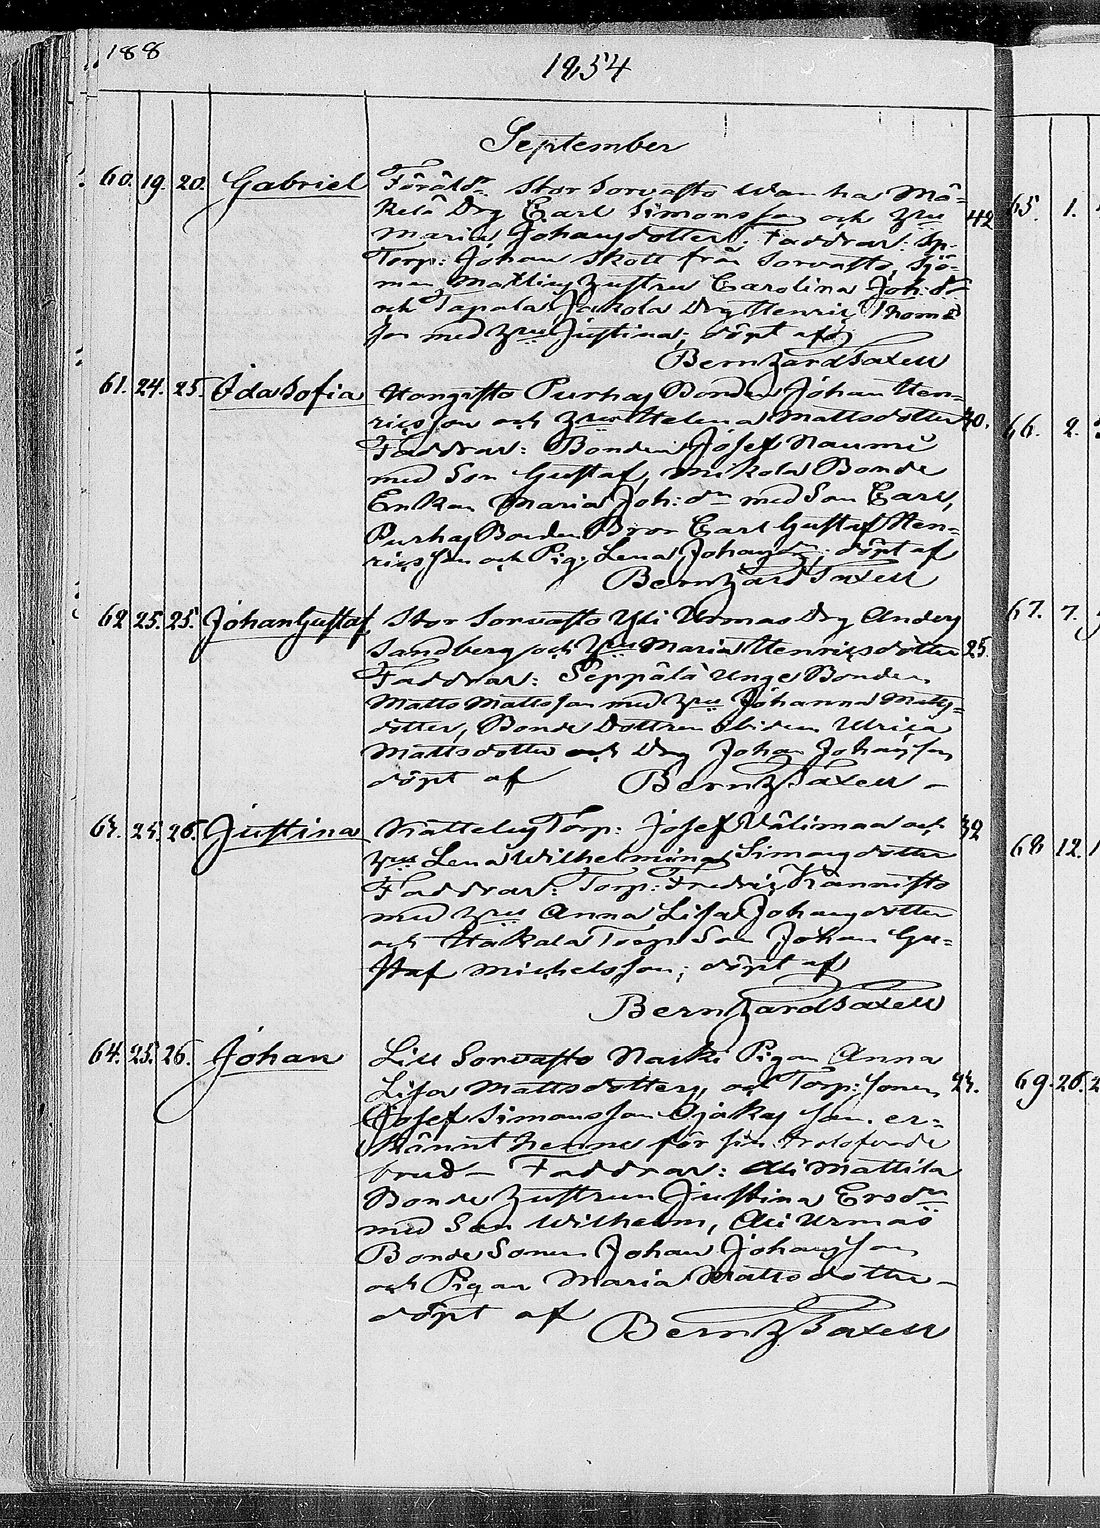 188
1854
September
60. 19. 20. Gabriel Föräldr. Stor Sorvasto Wanha Mä-
kelä Drg Carl Simonsson och Hru 42
Maria Johansdotter; Faddrar: Sp.
Torp: Johan Skott från Sorvasto, Sjö-
man Hustru Carolina Joh:dr
och Tapala Jakola Drg Henric Thoma
son med Hru Justina; döpt af
Bernhard Taxell
61. 24. 25. Ida Sofia Kangisto Purhaj Bonden Johan Hen-
ricsson och Hru Helena Mattsdotter 40.
Faddrar: Bonden Josef Naumi
med Son Gustaf, Mikola Bonde
Enkan Maria Joh:dr med Son Carl,
Purhaj Bonden Bror Carl Gustaf Hen-
ricsson och Pig. Lena Johansdr; döpt af
Bernhard Taxell
62 25. 25. Johan Gustaf Stor Sorvasto Yli Urmas Drg Anders
Sandberg och Hru Maria Henricsdotter 25.
Faddrar: Seppälä Unge Bonden
Matts Mattsson med Hru Johanna Matts-
dotter, Bonde Dottren ibidem Ulrica
Mattsdotter och Drg Johan Johansson
döpt af Bernh Taxell
63. 25. 26. Justina Torp: Josef Välimaa och 32
Hru Lena Wilhelmina Simonsdotter
Faddrar: Torp: Fredric Kannisto
med Hru Anna Lisa Johansdotter
och Hakala Torp Son Johan Gu-
staf Michelsson; döpt af
Bernhard Taxell
64. 25. 26. Johan Lill Sorvasto Naski Pigan Anna
Lisa Mattsdotters, och Torp: Sonen 24.
Josef Simonsson Ojakas son. er-
kännt henne för sin trolofvade
brud – Faddrar: Ali Mattila
Bonde Hustrun Justina Ersdr
med Son Wilhelm, Ali Urmas
Bonde Sonen Johan Johansson
och Pigan Maria Mattsdotter –
döpt af Bernh Taxell
65. 1.
66. 2.
67. 7.
68 12.
69. 26.